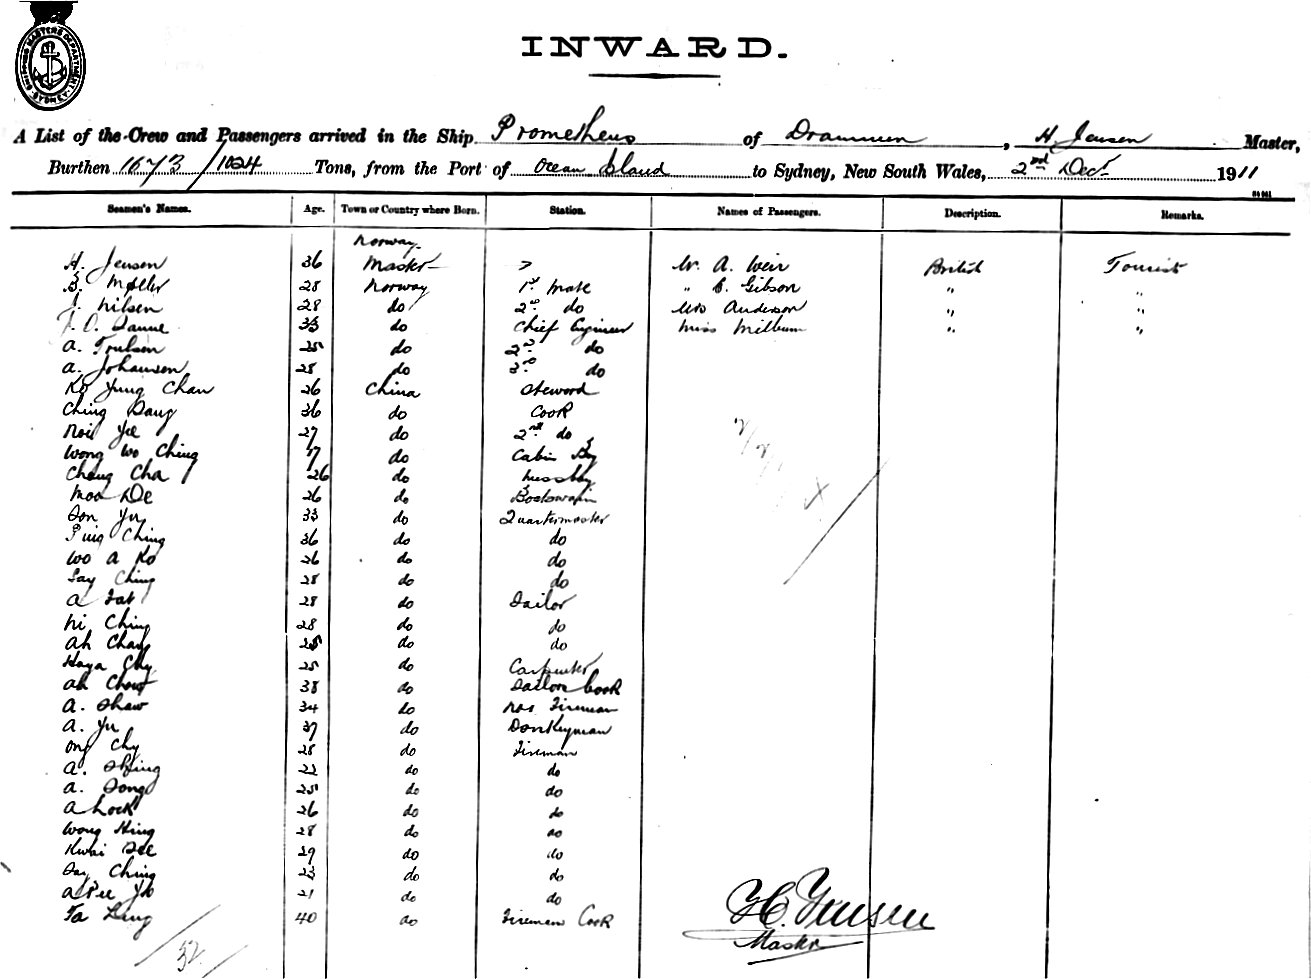 SHIPPING MASTERS DEPARTMENT SYDNEY
INWARD.
A List of the Crew and Passengers arrived in the Ship Prometheus of Drammen, H Jensen Master,
Burthen 1673/1024 Tons, from the Port of Ocean Island to Sydney, New South Wales, 2nd Dec 1911
Seamen's Names. Age. Town or Country where Born. Station. Names of Passengers. Description. Remarks.
Norway
H. Jensen 36 Master Mr. A. Weir British Tourist
Møller 28 Norway 1st Mate " C. Gibson " "
J. Nilsen 28 do 2nd do Mrs Anderson " "
33 do Chief Engineer Miss Milburn " "
A. 25 do 2nd do
A. Johansen 28 do 3rd do
Ko Yung Chan 26 China Steword
Ching Dang 36 do Cook
Noi Yee 27 do 2nd do
Wong Wo Ching 17 do Cabin Boy
Chong Cha 26 do Messboy
Moo De 26 do Boatswain
Son Yu 33 do Quartermaster
Ping Ching 36 do do
Wo A Ko 26 do do
Say Ching 28 do do
A Fat 28 do Sailor
Ni Ching 28 do do
Ah Chay 25 do do
Haya Chy 25 do Carpenter
Ah Chow 38 do Sailors Cook
A. Shaw 34 do No 1 Fireman
A. Yu 37 do Donkeyman
Ong Chy 28 do Fireman
A. Shing 22 do do
A. Song 25 do do
A Lock 26 do do
Wong Hing 28 do do
Kwai See 29 do do
Say Ching 23 do do
21 do do
Ta Ling 40 do Fireman Cook
H. Jensen
Master
32